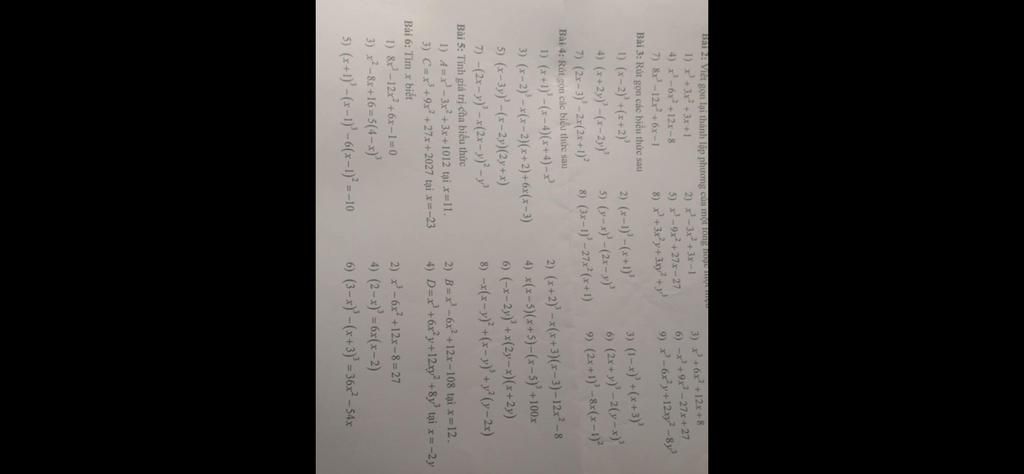 Bài 2: Viết gọn lại thành lập phương của một tổng hoặc một hiệu
1) x³+3x²+3x+1 2) x³-3x²+3x-1 3) x³+6x²+12x+8
4) x³-6x²+12x-8 5) x³-9x²+27x-27 6) -x³+9x²-27x+27
7) 8x³-12x²+6x-1 8) x³+3x²y+3xy²+y³ 9) x³-6x²y+12xy²-8y³
Bài 3: Rút gọn các biểu thức sau
1) (x-2)³+(x+2)³ 2) (x-1)³-(x+1)³ 3) (1-x)³+(x+3)³
4) (x+2y)³-(x-2y)³ 5) (y-x)³-(2x-y)³ 6) (2x+y)³-2(y-x)³
7) (2x-3)³-2x(2x+1)² 8) (3x-1)³-27x²(x+1) 9) (2x+1)³-8x(x-1)²
Bài 4: Rút gọn các biểu thức sau
1) (x+1)³-(x-4)(x+4)-x³ 2) (x+2)³-x(x+3)(x-3)-12x²-8
3) (x-2)³-x(x-2)(x+2)+6x(x-3) 4) x(x-5)(x+5)-(x-5)³+100x
5) (x-3y)³-(x-2y)(2y+x) 6) (-x-2y)³+x(2y-x)(x+2y)
7) -(2x-y)³-x(2x-y)²-y³ 8) -x(x-y)²+(x-y)³+y²(y-2x)
Bài 5: Tính giá trị của biểu thức
1) A=x³-3x²+3x+1012 tại x=11. 2) B=x³-6x²+12x-108 tại x=12.
3) C=x³+9x²+27x+2027 tại x=-23 4) D=x³+6x²y+12xy²+8y³ tại x=-2y
Bài 6: Tìm x biết
1) 8x³-12x²+6x-1=0 2) x³-6x²+12x-8=27
3) x²-8x+16=5(4-x)³ 4) (2-x)³=6x(x-2)
5) (x+1)³-(x-1)³-6(x-1)²=-10 6) (3-x)³-(x+3)³=36x²-54x